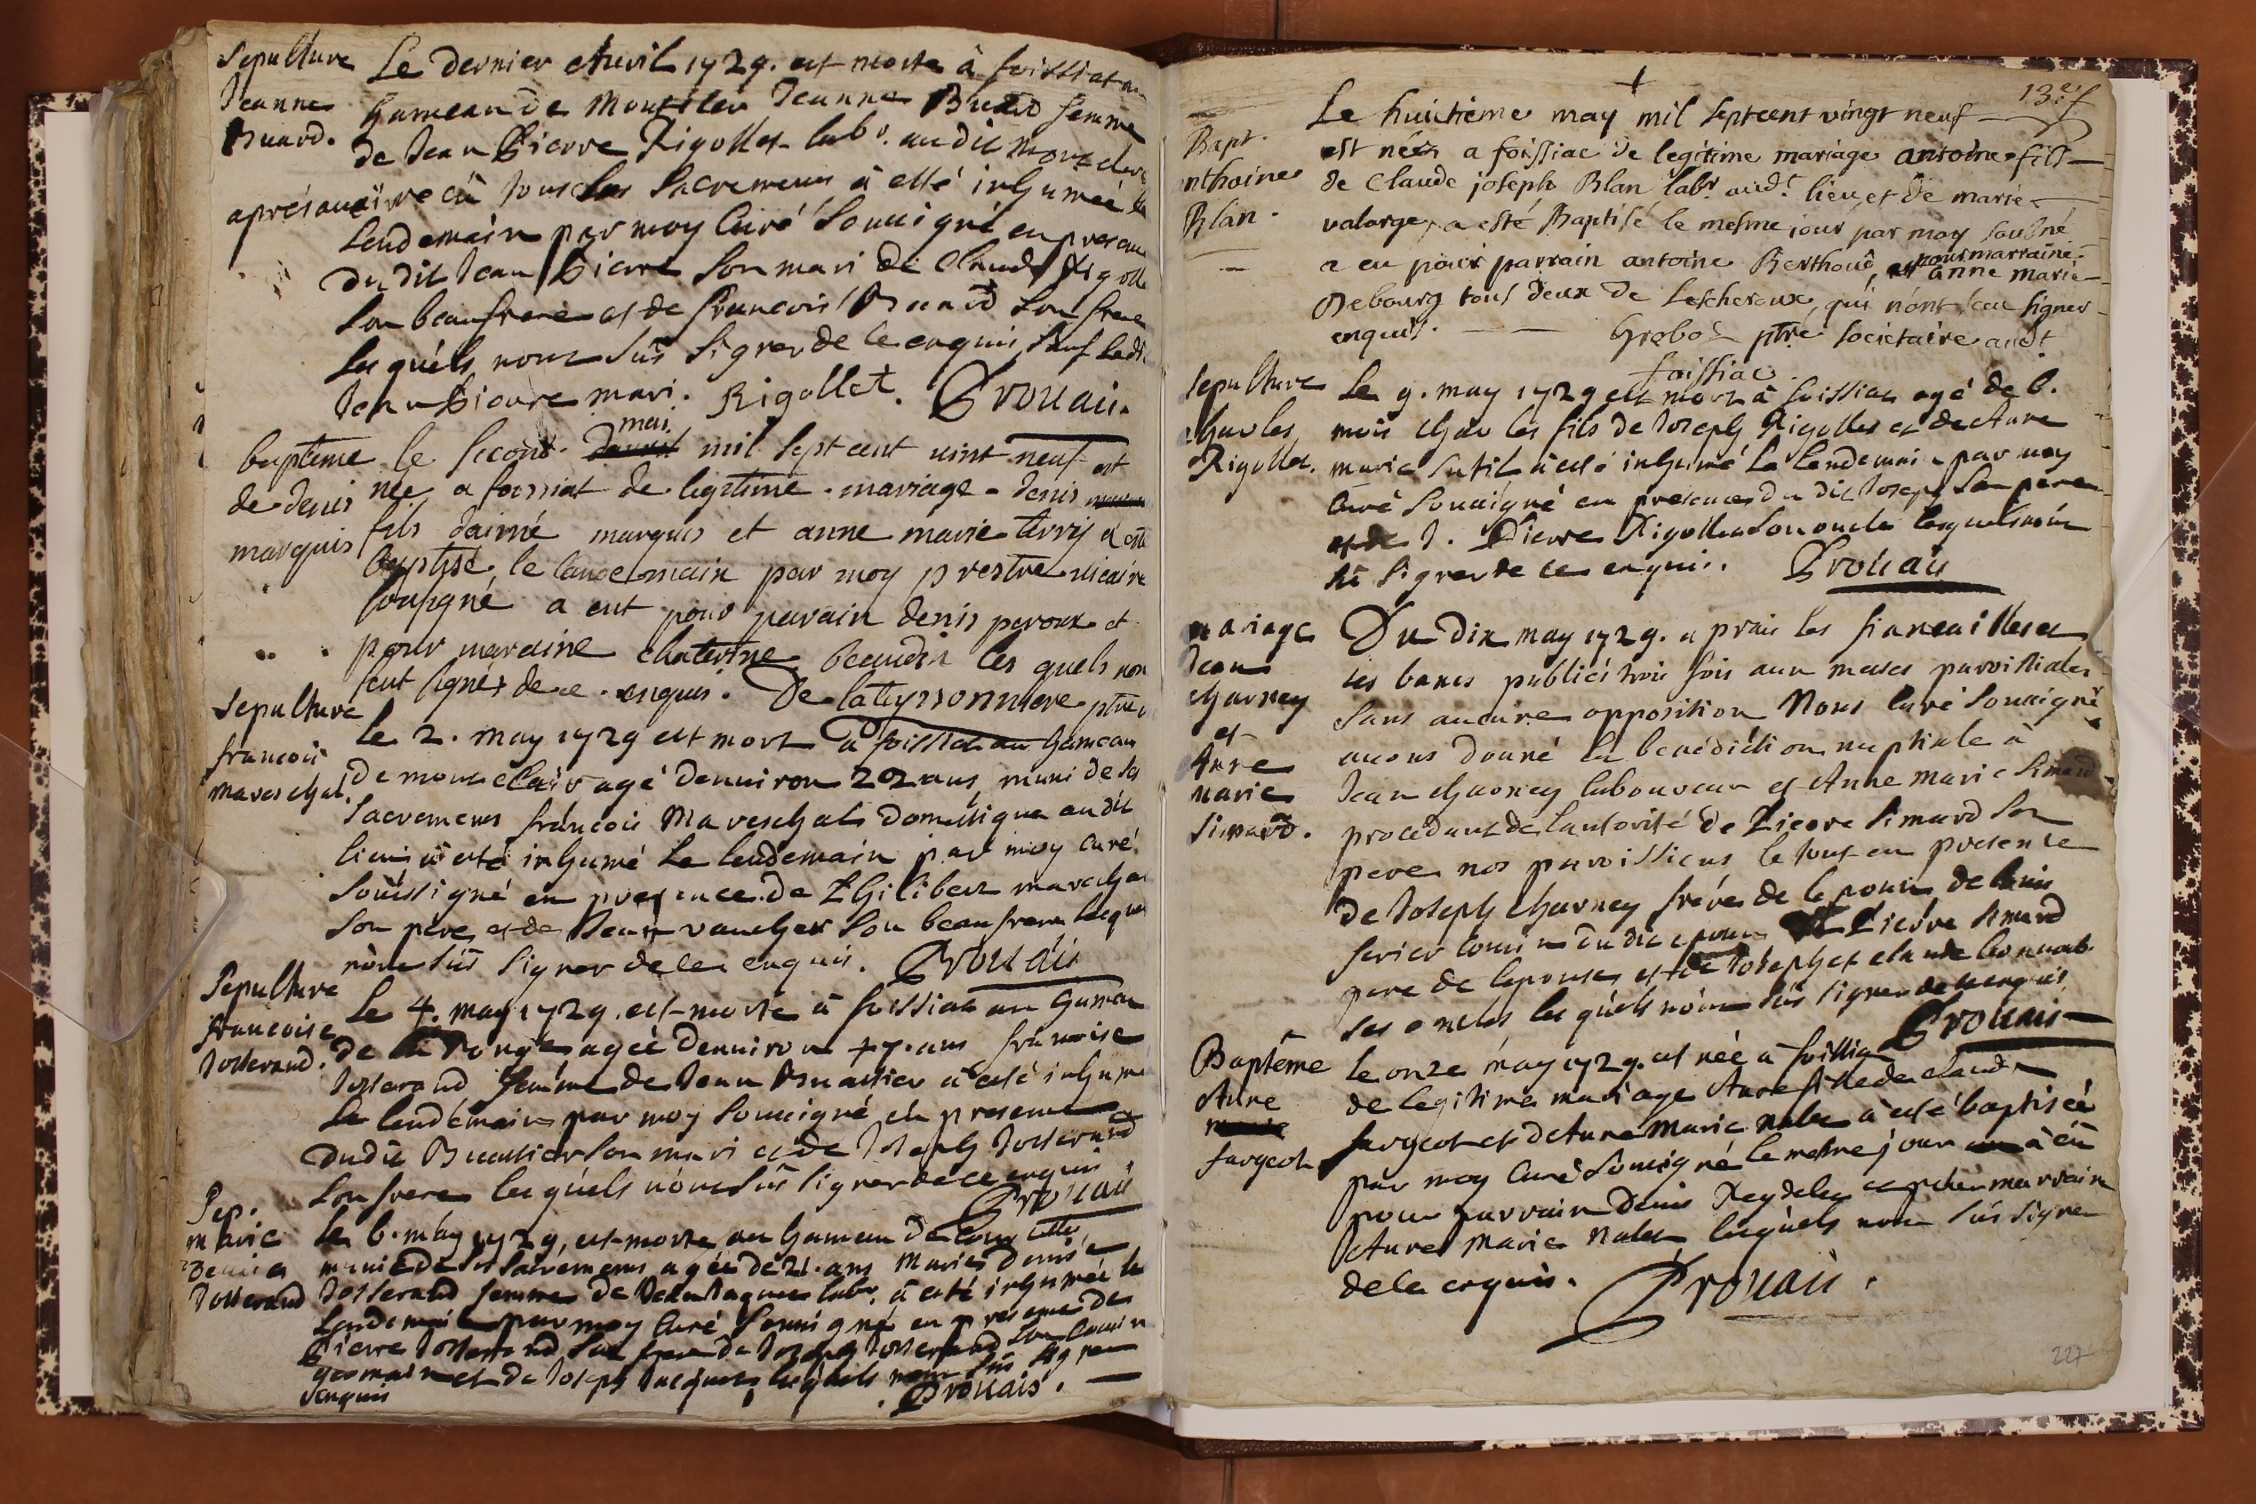 Sepulture
Jeanne
Buard.
Le dernier Avril 1729. est morte à foissiat au
hameau de Montcler Jeanne Buard femme
de Jean Pierre Rigollet labr. audit Montcler
après avoire eû tous les Sacremens à esté inhumée le
Lendemain par moy Curé Soussigné en presence
du dit Jean Pierre Son mari de Claude Rigollet
Son beaufrere et de francois Buard Son frere
Lesquels nont Sûs Signer de ce enquis, Sauf ledit
Jean Pierre mari. Rigollet. Prouais.
bapteme
de denis
marquis
le second mai mil sept cent vint neuf est
née a foissiat de legitime mariage denis
fils daimé marquis et anne marie terrij et esté
baptisé le landemain par moy prestre vicaire
sousigné a eut pour parain denis peroux et
pour maraine chaterine beaudin les quels non
seut signer de ce enquis. De lateyssonniere ptre v
Sepulture
francois
Mareschal.
Le 2. may 1729 est mort à foissiat au hameau
de montclair agé denuiron 22 ans, muni de ses
Sacremens françois Mareschal domestique audit
lieu à esté inhumé Le lendemain par moy curé
Soussigné en presence de Philibert mareschal
Son pere, et de Jean vaucher Son beaufrere lesquels
nònt sûs Signer de ce enquis. Prouais
Sepulture
francoise
Josserand.
Le 4. may 1729. est morte à foissiat au hameau
de la Ronge agée denuiron ans francoise
Josserand femme de Jean Buattier à esté inhumée
Le lendemain par moy Soussigné en presence
dudit Buattier Son mari et de Joseph Josserand
Son frere lesquels nònt Sûs Signer de ce enquis.
Prouais
Sep.
marie
denise
Josserand
Le 6. may 1729, est morte au hameau de
munie de ses Sacremens agée de 21. ans Marie denise
Josserand femme de Jean Jaques labr. à esté inhumée le
Lendemain par moy Curé Soussigné en presence de
Pierre Josserand Son frere de Joseph Josserand Son Cousin
germain et de Joseph Jacques lesquels nont Sûs Signer
denquis Prouais.
13e f
Bapt.
nthoine
Blan.
Le huitième may mil septcent vingt neuf
est néz a foissiac de legitime mariage antoine fils
de Claude joseph Blan labr. audt. lieu et de marie
valarge, a esté Baptisé le mesme iour par moy soubné
a eu pour parrain antoine Berthoud, et pour marraine anne marie
Debourg tous deux de Lescheroux, qui nònt sceu signer
enquis. Grobos ptre societaire audt
foissiac.
Sepulture
charles
Rigollet.
Le 9. may 1729 est mort à foissiat agé de 6.
mois charles fils de Joseph Rigollet et de Anne
marie Sutil à esté inhumé Le Lendemain par moy
Curé Soussigné en presence du dit Joseph Son pere
et de J. Pierre Rigollet Son oncle lesquels nònt
sû Signer de ce enquis. Prouais
Mariage
Jean
charney
et
Anne
marie
Simard.
Du Dix may 1729. aprais les fiancailles et
les bancs publiés trois fois aux messes paroissiales
Sans aucune opposition Nous Curé Soussigné
auons donné la benediction nuptiale à
Jean charney laboureur et Anne marie Simard
procedant de Lautorité de Pierre Simard Son
pere nos paroissiens le tout en presence
de Joseph charney frère de lepoux de denis
ferier Cousin dudit epoux et Pierre Simard
pere de lepouse et de Joseph et claude
ses oncles lesquels nònt sûs signer de ce enquis.
Prouais
Baptême
Anne
fargeot
Le onze may 1729. est née à foissiat
de legitime mariage Anne fille de claude
fargeot et de Anne marie nalet à esté baptisée
par moy Curé Soussigné le mesme jour à eû
pour parrain Denis Reydelet et pour marraine
Anne Marie nalet lesquels nont sûs signer
de ce enquis. Prouais.
227